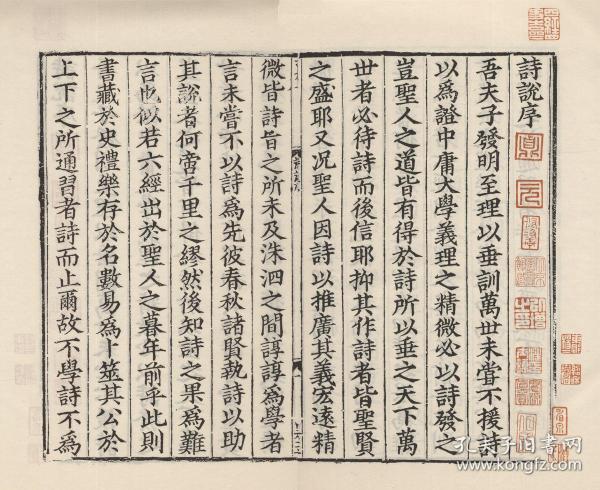 詩說序
吾夫子發明至理以垂訓萬世未嘗不援詩
以為證中庸大學義理之精微必以詩發之
豈聖人之道皆有得於詩所以垂之天下萬
世者必待詩而後信耶抑其作詩者皆聖賢
之盛耶又況聖人因詩以推廣其義宏遠精
微皆詩旨之所未及洙泗之間諄諄為學者
言未嘗不以詩為先彼春秋諸賢執詩以助
其說者何啻千里之繆然後知詩之果為難
言也似若六經出於聖人之暮年前乎此則
書藏於史禮樂存於名數易為卜筮其公於
上下之所通習者詩而止爾故不學詩不為
孔夫子旧书网
www.kongfz.com